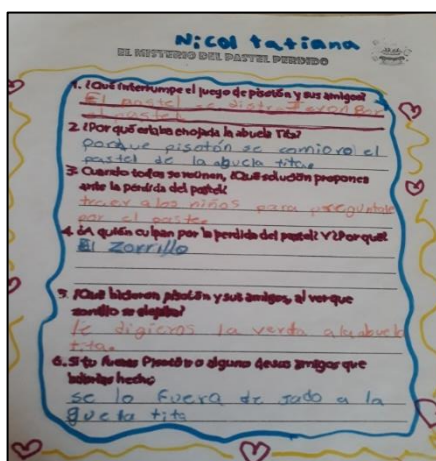 Nicol tatiana
EL MISTERIO DEL PASTEL PERDIDO
1. ¿Qué interrumpe el juego de pisotón y sus amigos?
El pastel se distrajeron por
el pastel
2. ¿Por qué estaba enojada la abuela Tita?
porque pisotón se comioro el
pastel de la abuela tita.
3. Cuando todos se reúnen, ¿Qué solución propones
ante la pérdida del pastel?
traer a los niños para preguntale
por el paste.
4. ¿A quién culpan por la perdida del pastel? Y ¿Por qué?
El zorrillo
5. ¿Que hicieron pisotón y sus amigos, al ver que
zorrillo se alejaba?
le digieros la verda a la abuela
tita.
6. Si tu fueras Pisotón o alguno de sus amigos que
habrías hecho
se lo fuera de jado a la
guela tita